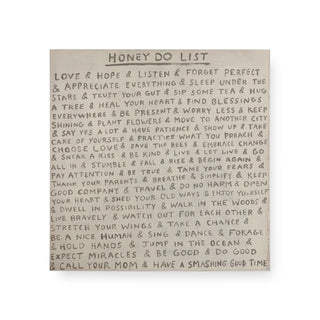 HONEY DO LIST
LOVE & HOPE & LISTEN & FORGET PERFECT
& APPRECIATE EVERYTHING & SLEEP UNDER THE
STARS & TRUST YOUR GUT & SIP SOME TEA & HUG
A TREE & HEAL YOUR HEART & FIND BLESSINGS
EVERYWHERE & BE PRESENT & WORRY LESS & KEEP
SHINING & PLANT FLOWERS & MOVE TO ANOTHER CITY
& SAY YES A LOT & HAVE PATIENCE & SHOW UP & TAKE
CARE OF YOURSELF & PRACTICE WHAT YOU PREACH &
CHOOSE LOVE & SAVE THE BEES & EMBRACE CHANGE
& SNEAK A KISS & BE KIND & LIVE & LET LIVE & GO
ALL IN & STUMBLE & FALL & RISE & BEGIN AGAIN &
PAY ATTENTION & BE TRUE & TAME YOUR FEARS &
THANK YOUR PARENTS & BREATHE & SIMPLIFY & KEEP
GOOD COMPANY & TRAVEL & DO NO HARM & OPEN
YOUR HEART & SHED YOUR OLD WAYS & ENJOY YOURSELF
& DWELL IN POSSIBILITY & WALK IN THE WOODS &
LIVE BRAVELY & WATCH OUT FOR EACH OTHER &
STRETCH YOUR WINGS & TAKE A CHANCE &
BE A NICE HUMAN & SING & DANCE & FORAGE
& HOLD HANDS & JUMP IN THE OCEAN &
EXPECT MIRACLES & BE GOOD & DO GOOD
& CALL YOUR MOM & HAVE A SMASHING GOOD TIME